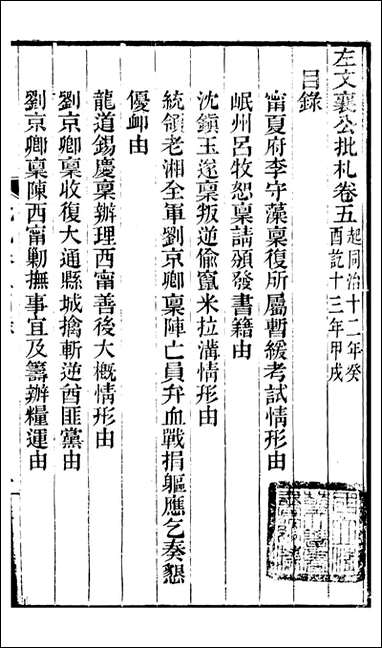 左文襄公批札卷五起同治十二年癸酉訖十三年甲戌
目錄
甯夏府李守藻稟復所屬暫緩考試情形由
岷州呂牧恕稟請頒發書籍由
沈鎮玉遂稟叛逆偷竄米拉溝情形由
統領老湘全軍劉京卿稟陣亡員弁血戰捐軀應乞奏懇
優卹由
龍道錫慶稟辦理西甯善後大概情形由
劉京卿稟收復大通縣城擒斬逆酋匪黨由
劉京卿稟陳西甯勦撫事宜及籌辦糧運由